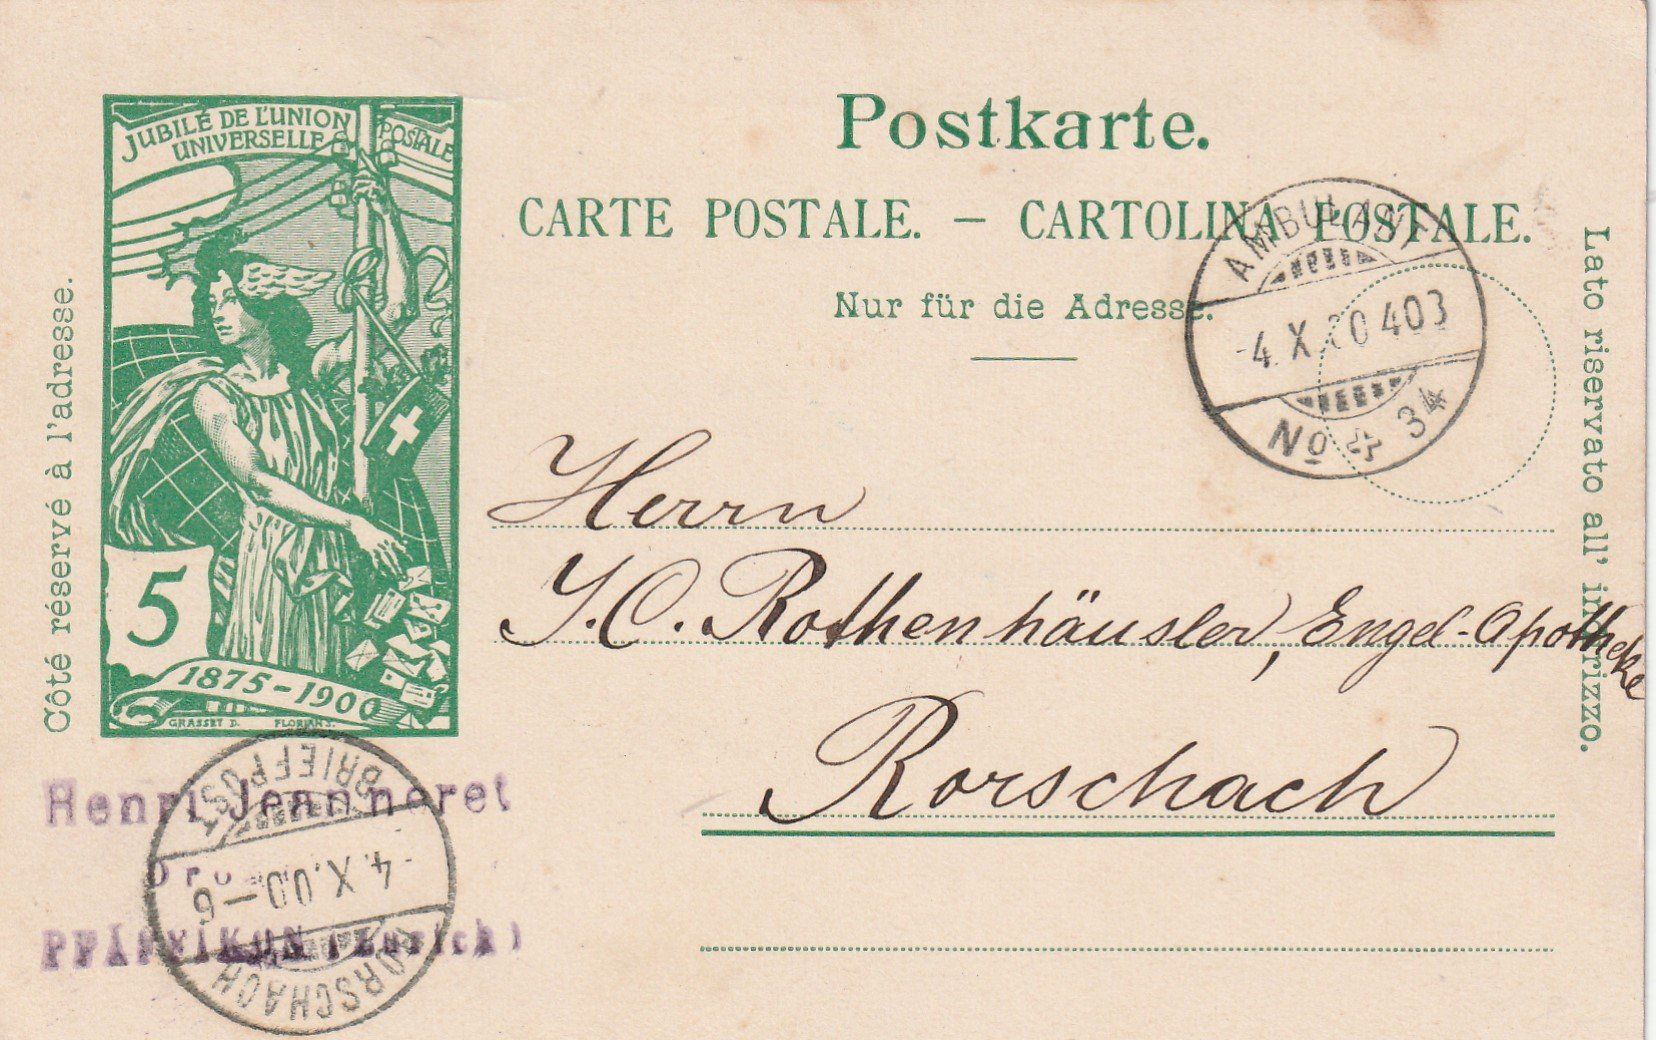 JUBILÉ DE L'UNION
UNIVERSELLE
POSTALE
5
1875-1900
GRASSET D. FLORIAN S.
Côté réservé à l'adresse.
Postkarte.
CARTE POSTALE. — CARTOLINA POSTALE.
Nur für die Adresse.
Lato riservato all' indirizzo.
AMBULANT
-4.X.00 403
No 34
Herrn
J. C. Rothenhäusler, Engel-Apotheke
Rorschach
Henri Jeanneret
PFÄFFIKON (Zürich)
BRIEFPOST
-4.X.00-6
RORSCHACH